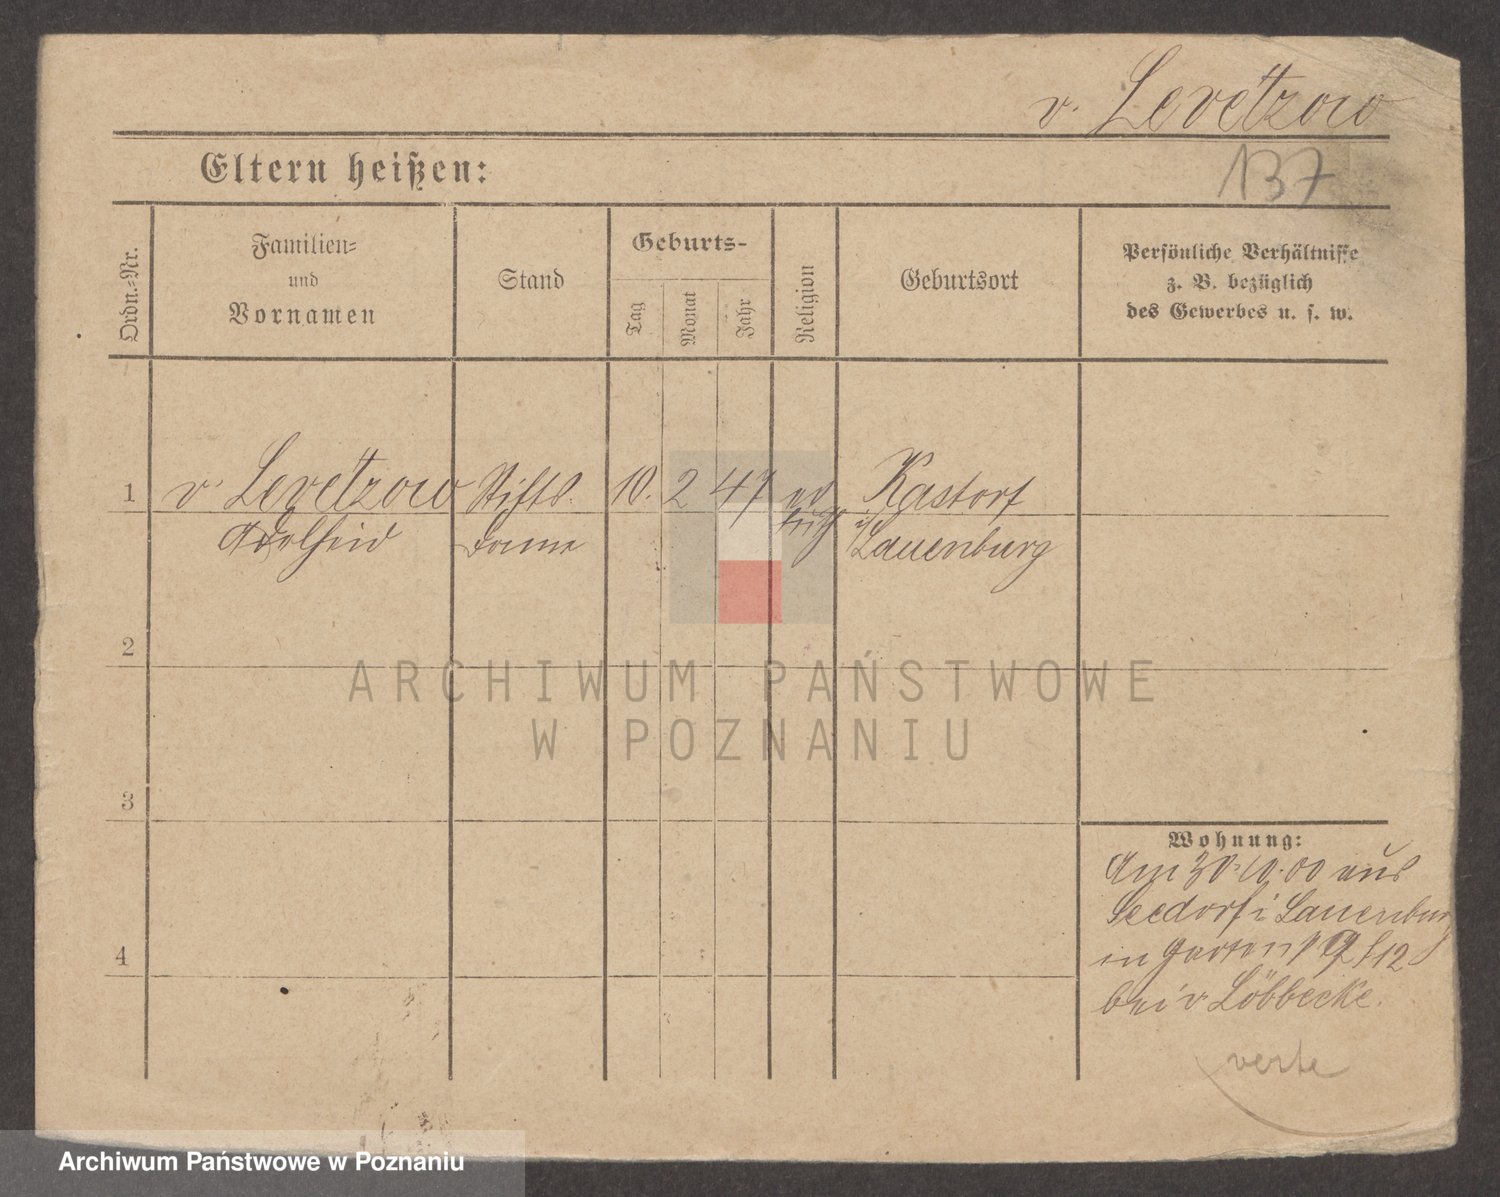 v. Levetzow
137
Eltern heißen:
Ordn.-Nr.
Familien-
und
Vornamen
Stand
Geburts-
Tag
Monat
Jahr
Religion
Geburtsort
Persönliche Verhältnisse
z. B. bezüglich
des Gewerbes u. s. w.
1 v. Levetzow Stifts- 10. 2 47 ev Kastorf
Adelheid Dame luth i/ Lauenburg
2
3
4
Wohnung:
Am 30.10.00 aus
Seedorf i Lauenburg
in 12
bei v Löbbecke.
verte
ARCHIWUM PAŃSTWOWE
W POZNANIU
Archiwum Państwowe w Poznaniu